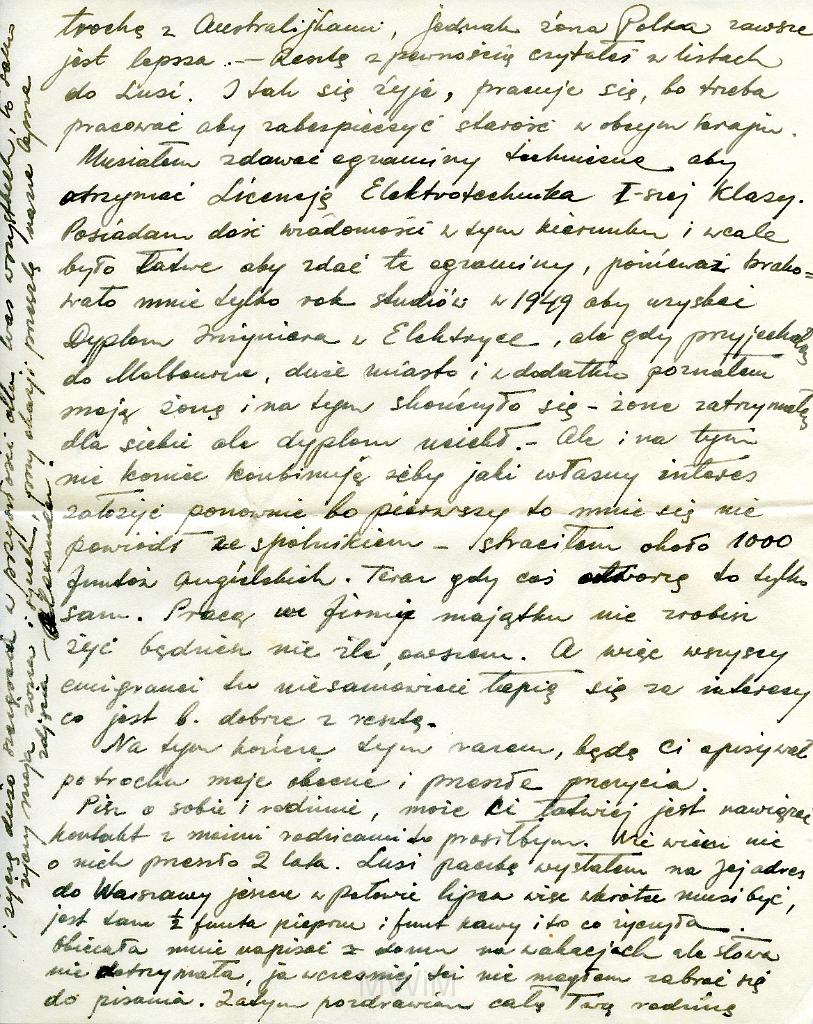 trochę z Australijkami, jednak żona Polka zawsze
jest lepsza. — Resztę z pewnością czytałeś w listach
do Lusi. I tak się żyje, pracuje się, bo trzeba
pracować aby zabezpieczyć starość w obcym kraju.
Musiałem zdawać egzaminy techniczne aby
otrzymać Licencję Elektrotechnika I-szej Klasy.
Posiadam dość wiadomości w tym kierunku i wcale
było łatwe aby zdać te egzaminy, ponieważ brako=
wało mnie tylko rok studiów w 1949 aby uzyskać
Dyplom Inżyniera w Elektryce, ale gdy przyjechałem
do Melbourne, duże miasto i w dodatku poznałem
moją żonę i na tym skończyło się - żonę zatrzymałem
dla siebie ale dyplom uciekł. - Ale i na tym
nie koniec kombinuję żeby jaki własny interes
założyć ponownie bo pierwszy to mnie się nie
powiódł ze spólnikiem - straciłem około 1000
funtów angielskich. Teraz gdy coś otworzę to tylko
sam. Pracą w firmie majątku nie zrobisz
żyć będziesz nie źle, owszem. A więc wszyscy
emigranci tu niesamowicie łapią się za interesy
co jest b. dobrze z resztą.
Na tym kończę tym razem, będę Ci opisywał
po trochu moje obecne i przeszłe przeżycia.
Pisz o sobie i rodzinie, może Ci łatwiej jest nawiązać
kontakt z moimi rodzicami to prosiłbym. Nie wiem nic
o nich przeszło 2 lata. Lusi paczkę wysłałem na Jej adres
do Warszawy jeszcze w połowie lipca więc wkrótce musi być,
jest tam ½ funta pieprzu i funt kawy i to co życzyła.
Obiecała mnie napisać z domu na wakacjach ale słowa
nie dotrzymała, ja wcześniej też nie mogłem zabrać się
do pisania. Zatym pozdrawiam całą Twą rodzinę
i życzę dużo szczęścia w przyszłości dla Was wszystkich, to samo
życzy moja żona i synek, przy okazji prześlę nasze lepsze
zdjęcia — Aleksander.
MWiM